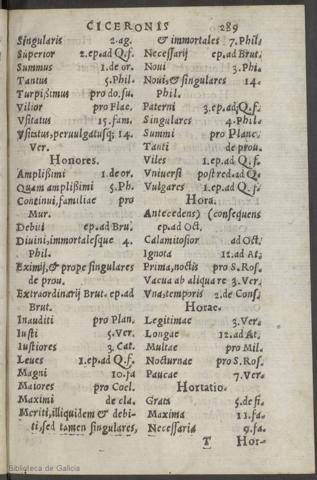 CICERONIS 289
Singularis 2. ag.
Superior 2. ep. ad Q. f.
Summus 1. de or.
Tantus 5. Phil.
Turpißimus pro do. su.
Vilior pro Flac.
Vsitatus 15. fam.
Vsitatus, peruulgatusq; 14.
Ver.
Honores.
Amplißimi 1. de or.
Quam amplißimi 5. Ph.
Continui, familiae pro
Mur.
Debiti ep. ad Bru.
Diuini, immortalesque 4.
Phil.
Eximij, & prope singulares
de prou.
Extraordinarij Brut. ep. ad
Brut.
Inauditi pro Plan.
Iusti 5. Ver.
Iustiores 3. Cat.
Leues 1. ep. ad Q. f.
Magni 10. fa
Maiores pro Coel.
Maximi de cla.
Meriti, illiquidem & debi-
ti, sed tamen singulares,
& immortales 7. Phil.
Necessarij ep. ad Brut.
Noui 3. Phi.
Noui, & singulares 14.
Phil.
Paterni 3. ep. ad Q. f.
Singulares 4. Phil.
Summi pro Planc.
Tanti de prou.
Viles 1. ep. ad Q. f.
Vniuersi post red. ad Q.
Vulgares 1. ep. ad Q. f.
Hora.
Antecedens) (consequens
ep. ad Oct.
Calamitosior ad Oct.
Ignota 12. ad At.
Prima, noctis pro S. Ros.
Vacua ab aliqua re 3. Ver.
Vna, temporis 2. de Cons.
Horae.
Legitimae 3. Ver.
Longae 12. ad At.
Multae pro Mil.
Nocturnae pro S. Ros.
Paucae 7. Ver.
Hortatio.
Grata 5. de fi.
Maxima 11. fa.
Necessaria 9. fa.
T Hor-
Biblioteca de Galicia